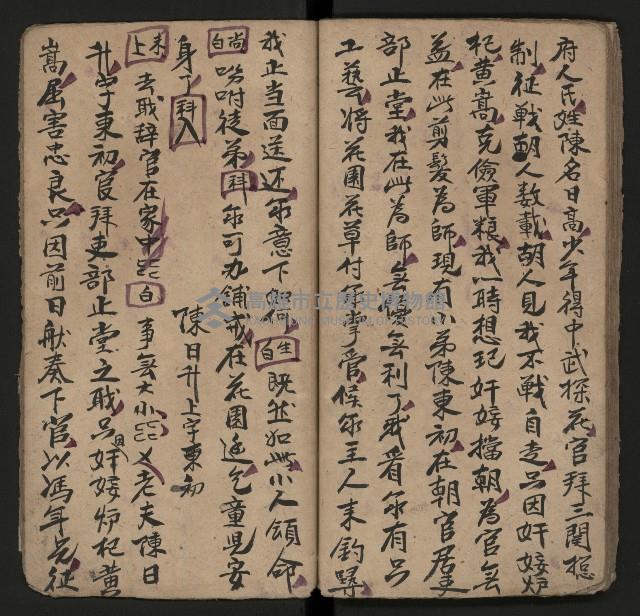 府人氏姓陳名日高少年得中武探花官拜三関揔
制征戦朝人数載胡人見我不戦自走只因奸妾炉
杞黄嵩克儉軍粮我一時想犯奸妾擋朝為官無
益在此剪髪為師現有小弟陳東初在朝官居吏
部止堂我在此為師無憀無利了我看尔有只
工藝将花園花草付尔掌管候尔主人来釣尋
我止当面送还尔意下如何生白既然如此小人領命
尚白吩咐徒弟拜尔可办鋪盖在花園延乞童児安
身了拜入
陳日升上字東初
末上去戢辞官在家中白事無大小老夫陳日
升字東初官拜吏部止堂之戢只因奸妾炉杞黄
嵩屈害忠良只因前日献奏下官以馮年児征
高雄市立歷史博物館
KAOHSIUNG MUSEUM OF HISTORY